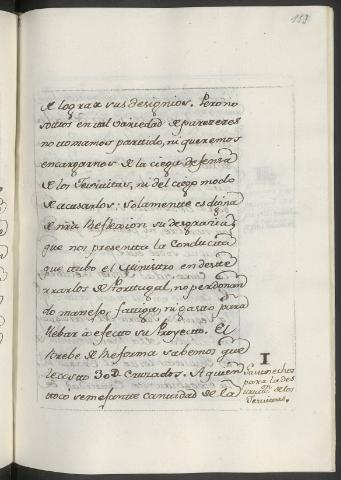 de lograr sus designios. Pero no
sotros en tal variedad de pareceres
no tomamos partido, ni queremos
encargarnos de la ciega defensa
de los Jesuitas, ni del ciego modo
de acusarlos: solamente es digna
de ntra Reflexion su desgracia,
que nos presenta la Conducta
que tubo el Ministro en deste
rrarlos de Portugal, no perdonan
do manejo, fatiga, ni gasto para
llebar à efecto su Proyecto. El
Brebe de Reforma sabemos que
le costo 30D. Cruzados. A quien
toco semejante cantidad de la
I
Gastos hechos
para la des
truc.on de los
Jesuitas.